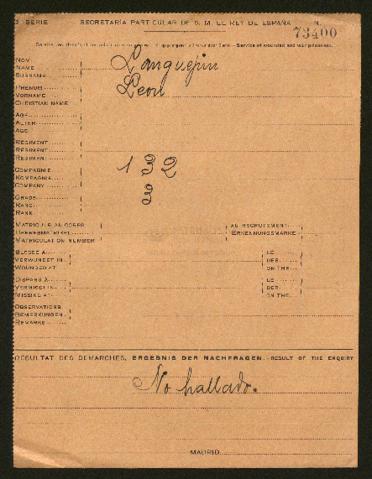 3 SERIE SECRETARÍA PARTICULAR DE S. M. EL REY DE ESPAÑA N.
73400
NOM
NAME
SURNAME
Languepin
PRENOM
VORNAME
CHRISTIAN NAME
Leon
AGE
ALTER
AGE
REGIMENT
REGIMENT
REGIMENT
COMPAGNIE
KOMPAGNIE
COMPANY
132
GRADE
RANG
RANK
MATRICULE AU CORPS AU RECRUTEMENT
ERKENNUNGSMARKE
MATRICULATION NUMBER
BLESSÉ A LE
VERWUNDET IN DER
WOUNDED AT ON THE
DISPARU A LE
VERMISST IN DER
MISSING AT ON THE
OBSERVATIONS
BEMERKUNGEN
REMARKS
RESULTAT DES DEMARCHES. ERGEBNIS DER NACHFRAGEN.-RESULT OF THE ENQUIRY
No hallado.
MADRID